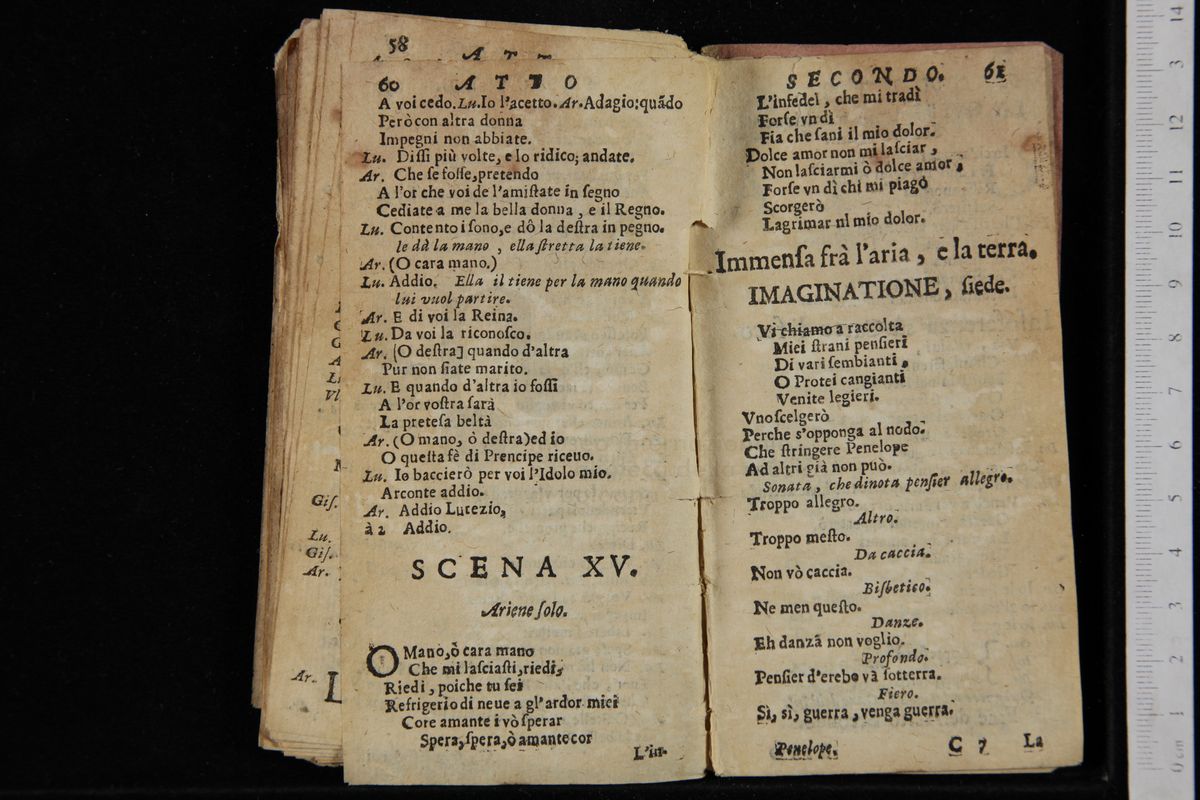 58
60 ATTO
A voi cedo. Lu. Io l'acetto. Ar. Adagio: quãdo
Però con altra donna
Impegni non abbiate.
Lu. Diſſi più volte, e lo ridico; andate.
Ar. Che ſe foſſe, pretendo
A l'or che voi de l'amiſtate in ſegno
Cediate a me la bella donna, e il Regno.
Lu. Contento i ſono, e dô la deſtra in pegno.
le dà la mano, ella ſtretta la tiene.
Ar. (O cara mano.)
Lu. Addio. Ella il tiene per la mano quando
lui vuol partire.
Ar. E di voi la Reina.
Lu. Da voi la riconoſco.
Ar. (O deſtra] quando d'altra
Pur non ſiate marito.
Lu. E quando d'altra io foſſi
A l'or voſtra ſarà
La preteſa beltà
Ar. (O mano, ò deſtra) ed io
O queſta fè di Prencipe riceuo.
Lu. Io baccierò per voi l'Idolo mio.
Arconte addio.
Ar. Addio Lucezio,
à 2 Addio.
SCENA XV.
Ariene ſolo.
O Mano, ò cara mano
Che mi laſciaſti, riedi,
Riedi, poiche tu ſei
Refrigerio di neue a gl'ardor miei
Core amante i vò ſperar
Spera, ſpera, ò amante cor
L'in-
SECONDO. 61
L'infedel, che mi tradì
Forſe vn dì
Fia che ſani il mio dolor.
Dolce amor non mi laſciar,
Non laſciarmi ò dolce amor,
Forſe vn dì chi mi piagò
Scorgerò
Lagrimar nl mio dolor.
Immenſa frà l'aria, e la terra.
IMAGINATIONE, ſiede.
Vi chiamo a raccolta
Miei ſtrani penſieri
Di vari ſembianti,
O Protei cangianti
Venite legieri.
Vno ſcelgerò
Perche s'opponga al nodo.
Che ſtringere Penelope
Ad altri già non può.
Sonata, che dinota penſier allegro.
Troppo allegro.
Altro.
Troppo meſto.
Da caccia.
Non vò caccia.
Biſbetico.
Ne men queſto.
Danze.
Eh danzã non voglio.
Profondo.
Penſier d'erebo và ſotterra.
Fiero.
Sì, sì, guerra, venga guerra.
Penelope. C 7 La
Giſ.
Lu.
Giſ.
Ar.
Ar.